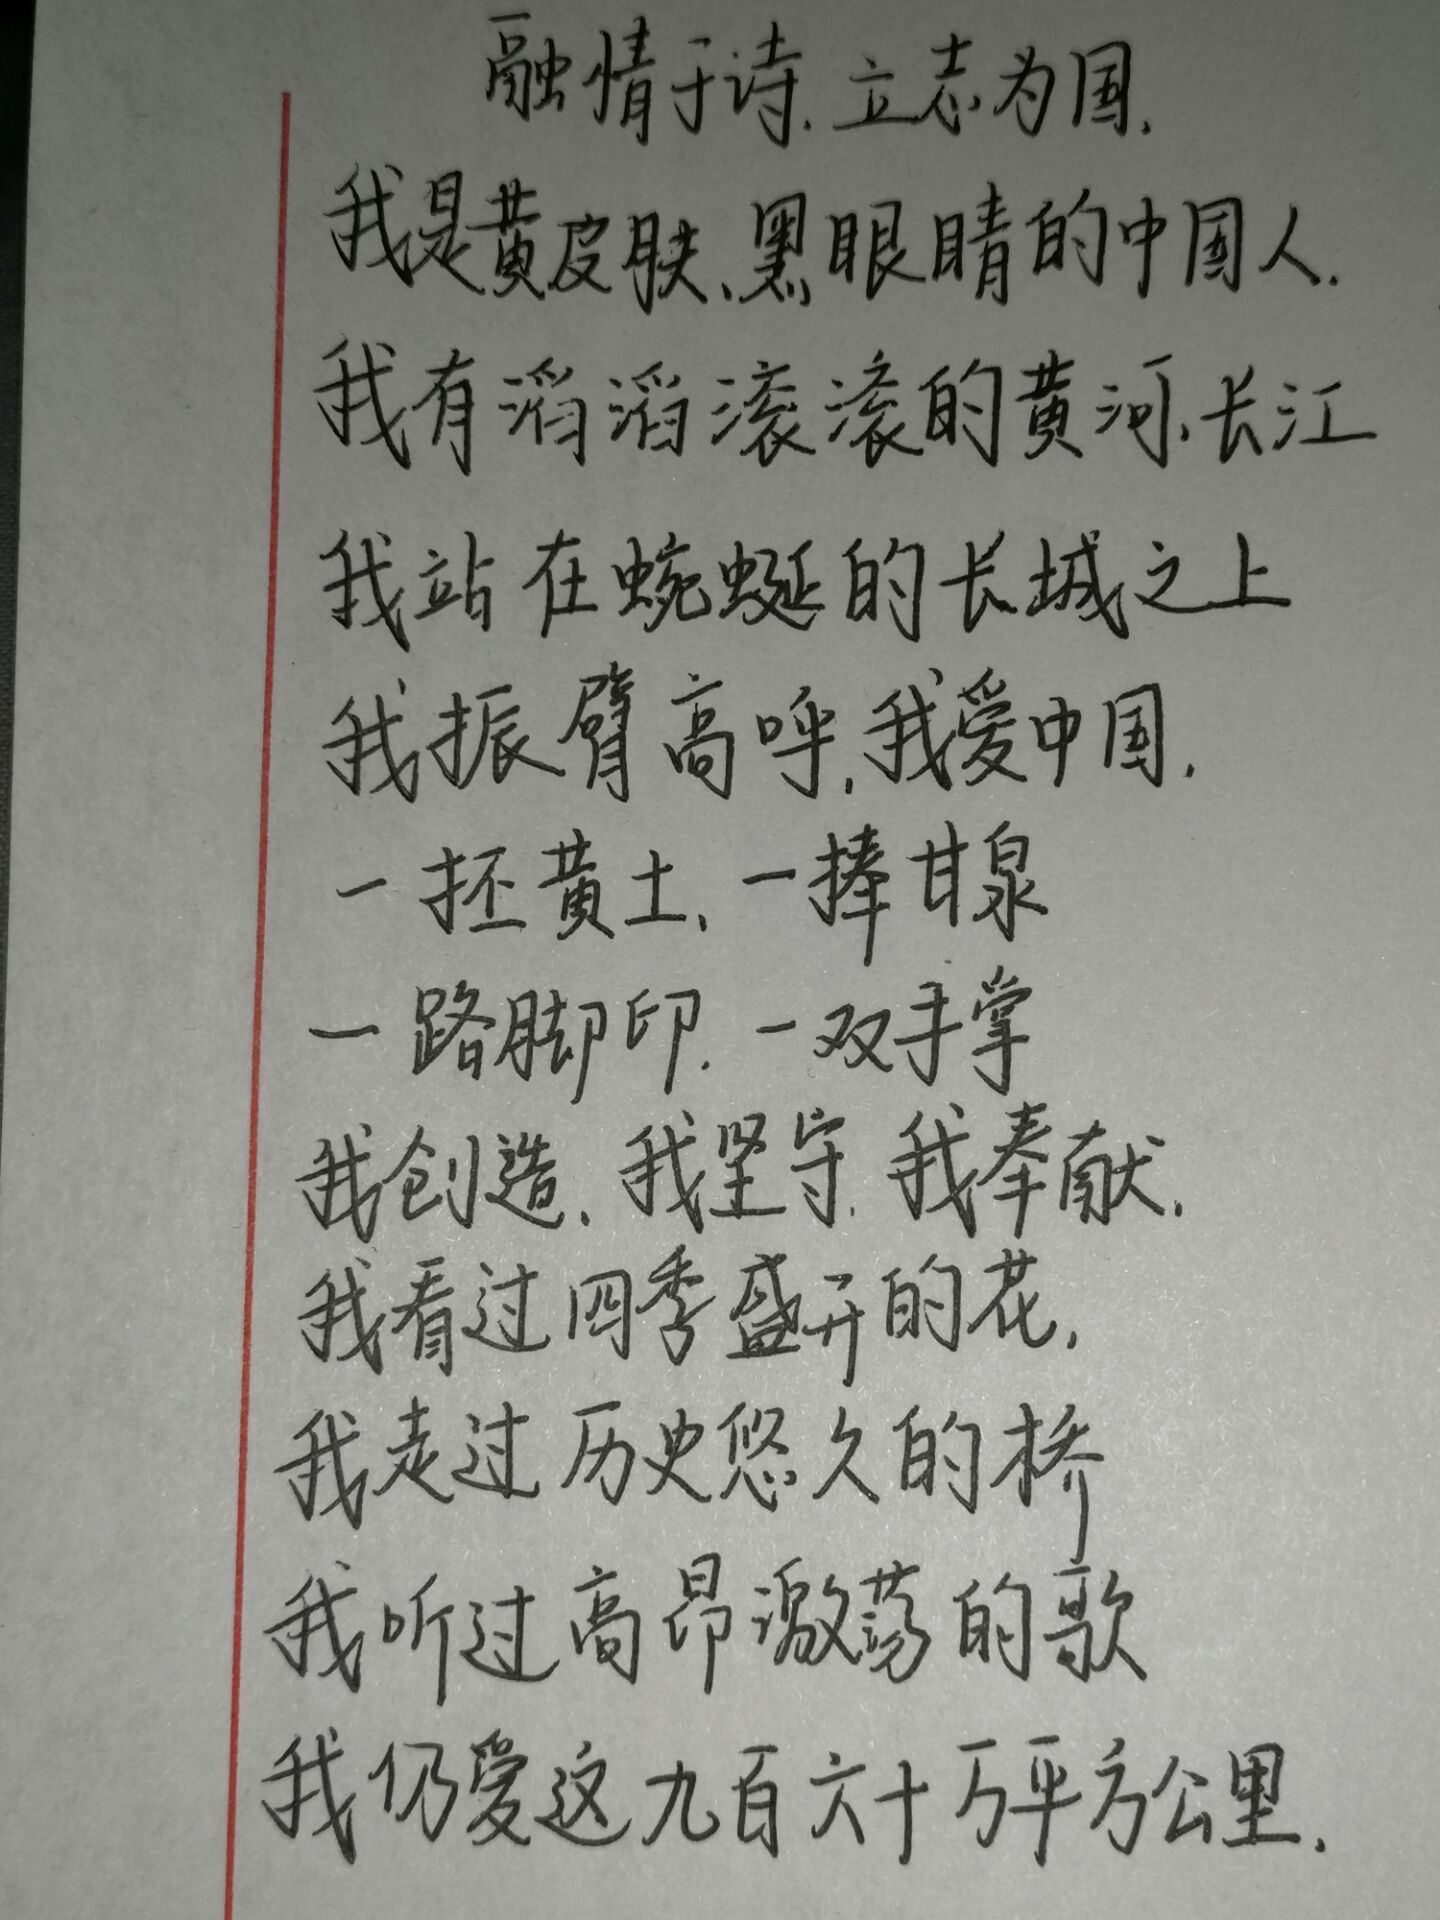 融情于诗.立志为国.
我是黄皮肤、黑眼睛的中国人.
我有滔滔滚滚的黄河、长江
我站在蜿蜒的长城之上
我振臂高呼,我爱中国.
一抔黄土、一捧甘泉
一路脚印.一双手掌
我创造、我坚守.我奉献.
我看过四季盛开的花,
我走过历史悠久的桥
我听过高昂激荡的歌
我仍爱这九百六十万平方公里.